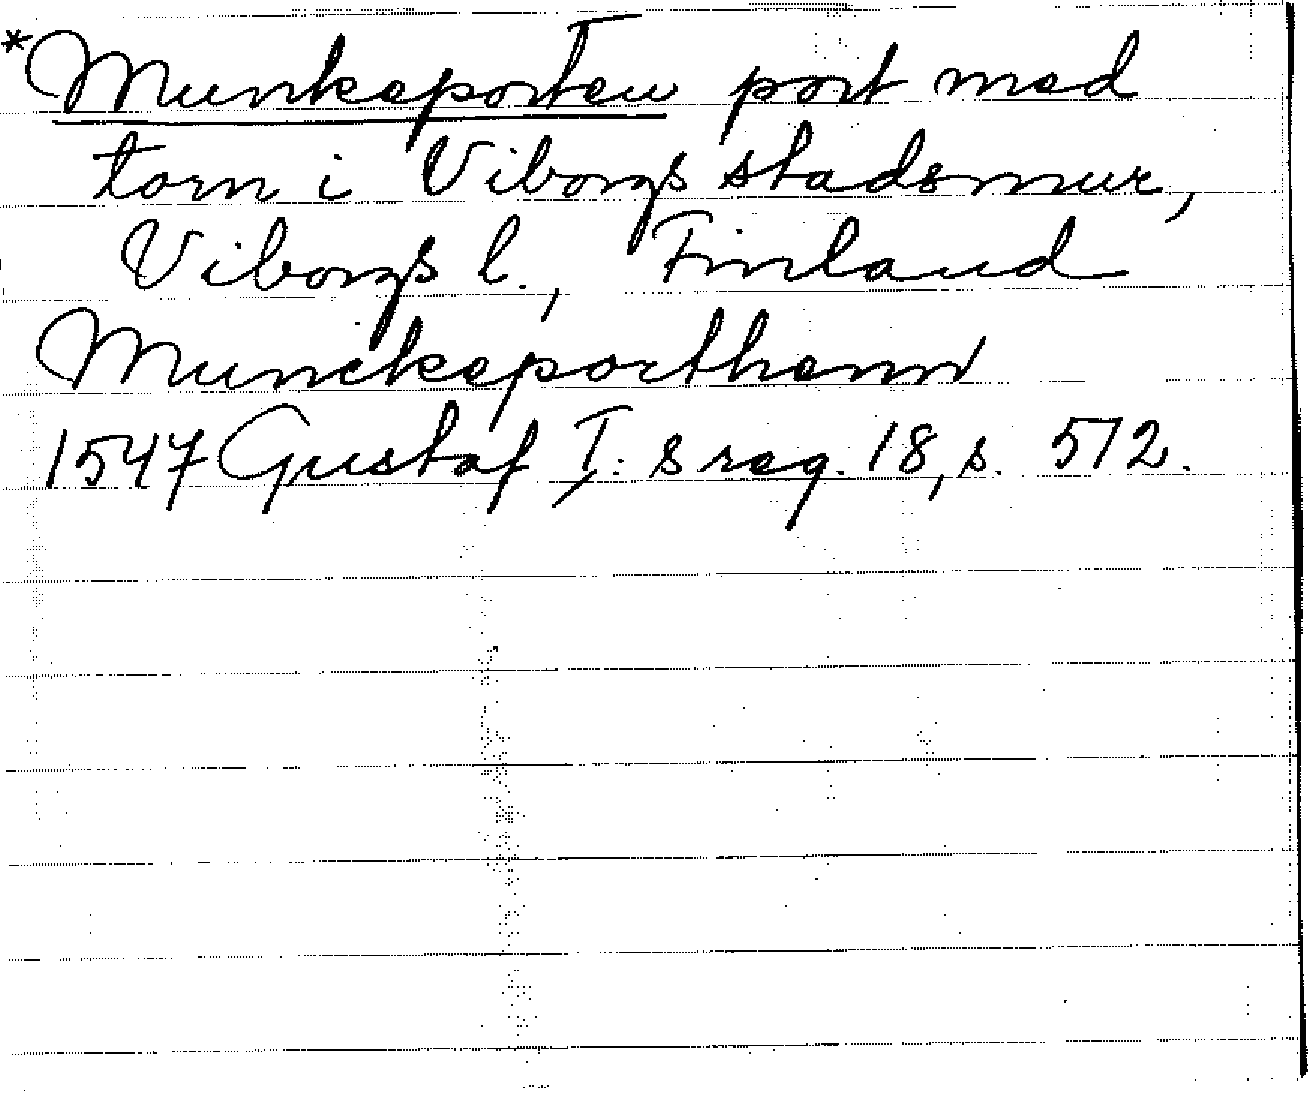 *Munkeporten port med
torn i Viborgs stadsmur,
Viborgs l., Finland
Munckeporthenn
1547 Gustaf I:s reg. 18, s. 512.